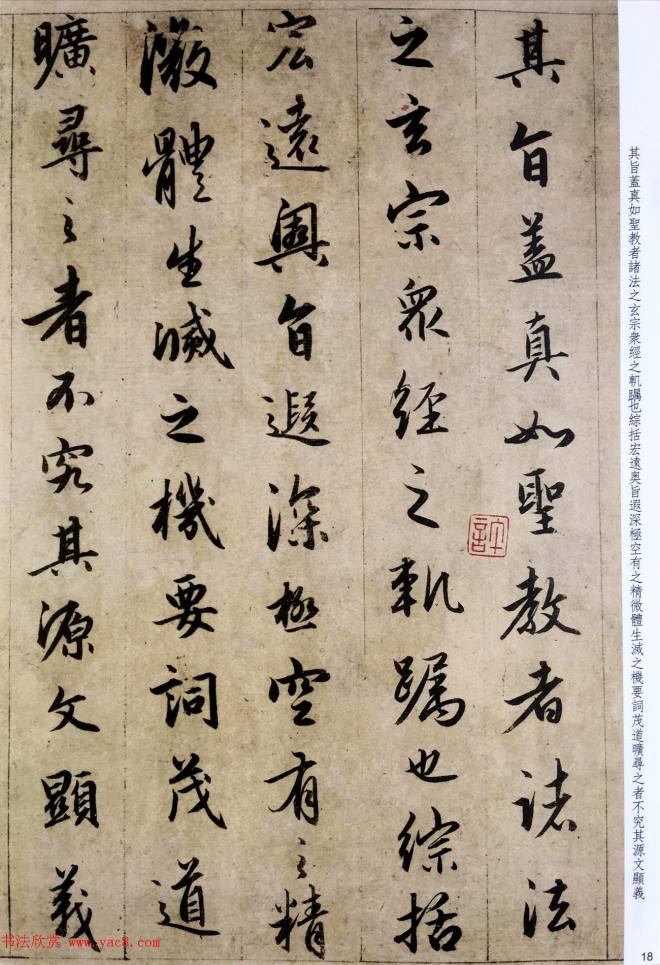 其旨蓋真如聖教者諸法
之玄宗眾經之軌躅也綜括
宏遠奧旨遐深極空有之精
微體生滅之機要詞茂道
曠尋之者不究其源文顯義
其旨蓋真如聖教者諸法之玄宗衆經之軌躅也綜括宏遠奧旨遐深極空有之精微體生滅之機要詞茂道曠尋之者不究其源文顯義
18
书法欣赏 www.yac8.com